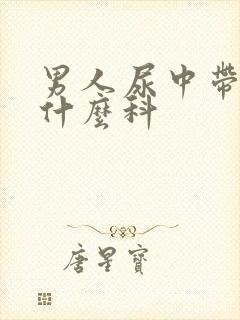 男人尿中帶
什麼科
唐星寶